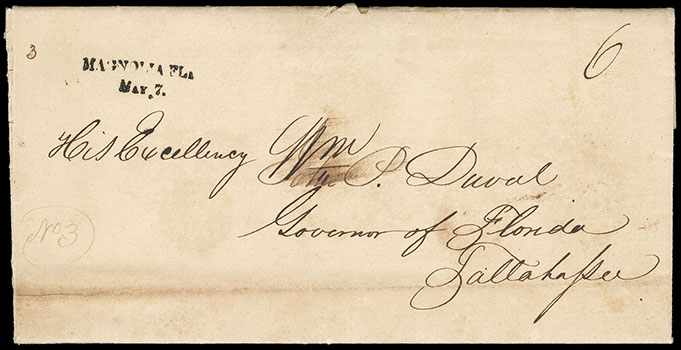 3
6
MAGNOLIA FLA
MAY. 7.
His Excellency Wm P. Duval
Governor of Florida
Tallahassee
No 3